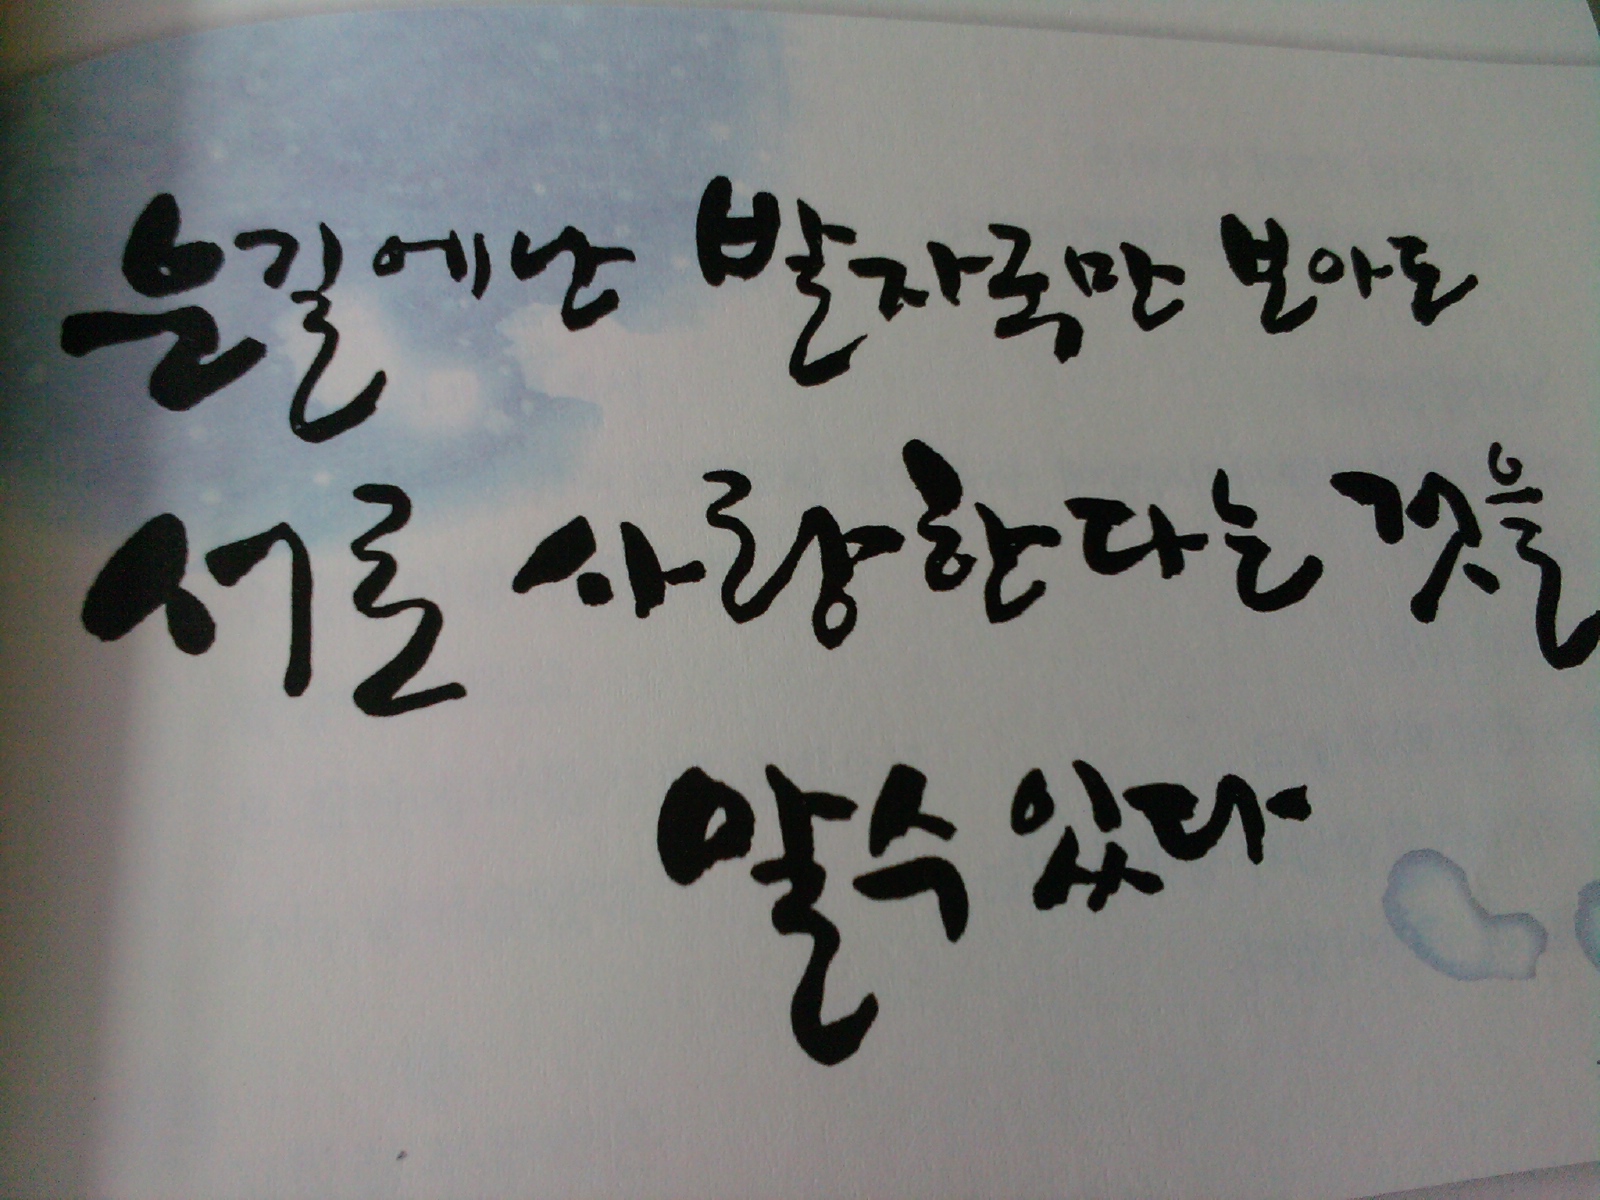 눈길에난 발자국만 보아도
서로 사랑한다는 것을
알수 있다